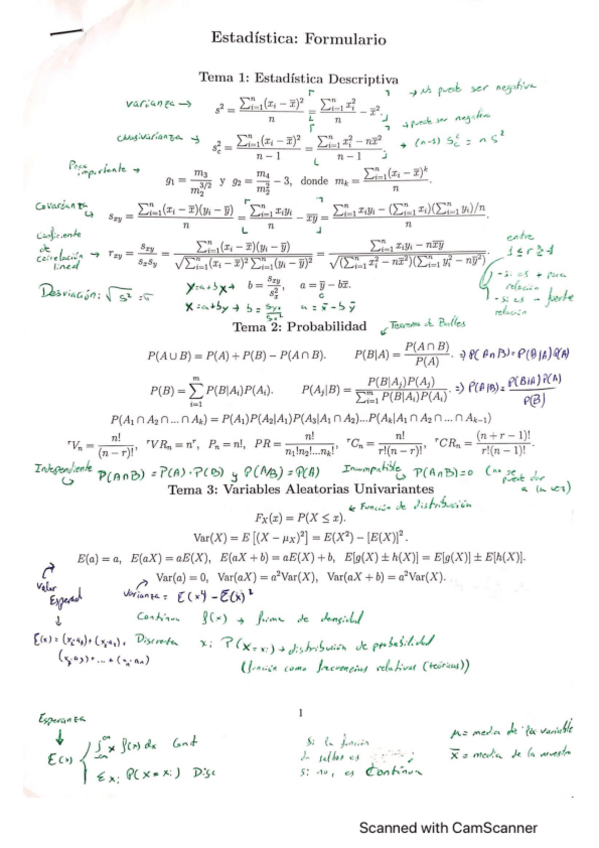 Estadística: Formulario
Tema 1: Estadística Descriptiva
→ No puede ser negativa
varianza → s² = ∑ⁿᵢ₌₁(xᵢ − x̄)² / n = ∑ⁿᵢ₌₁ xᵢ² / n − x̄².
→ puede ser negativa
cuasivarianza → s²_c = ∑ⁿᵢ₌₁(xᵢ − x̄)² / (n − 1) = (∑ⁿᵢ₌₁ xᵢ² − nx̄²) / (n − 1). → (n-1) S²_c = n S²
Poco importante → g₁ = m₃ / m₂^{3/2} y g₂ = m₄ / m₂² − 3, donde m_k = ∑ⁿᵢ₌₁(xᵢ − x̄)ᵏ / n.
Covarianza → s_xy = ∑ⁿᵢ₌₁(xᵢ − x̄)(yᵢ − ȳ) / n = ∑ⁿᵢ₌₁ xᵢyᵢ / n − x̄ȳ = (∑ⁿᵢ₌₁ xᵢyᵢ − (∑ⁿᵢ₌₁ xᵢ)(∑ⁿᵢ₌₁ yᵢ)/n) / n.
Coeficiente de correlación lineal → r_xy = s_xy / (s_x s_y) = ∑ⁿᵢ₌₁(xᵢ − x̄)(yᵢ − ȳ) / √(∑ⁿᵢ₌₁(xᵢ − x̄)² ∑ⁿᵢ₌₁(yᵢ − ȳ)²) = (∑ⁿᵢ₌₁ xᵢyᵢ − nx̄ȳ) / √((∑ⁿᵢ₌₁ xᵢ² − nx̄²)(∑ⁿᵢ₌₁ yᵢ² − nȳ²)).
entre
relación
- si es - fuerte
relación
Desviación: √s²
y = a + bx → b = s_xy / s²_x, a = ȳ − bx̄.
x = a + by → b = s_yx a = x̄ - bȳ
Tema 2: Probabilidad
Teorema de
P(A ∪ B) = P(A) + P(B) − P(A ∩ B). P(B|A) = P(A ∩ B) / P(A). ⇒ P(A∩B) = P(B|A) P(A)
P(B) = ∑ᵐᵢ₌₁ P(B|Aᵢ)P(Aᵢ). P(Aⱼ|B) = P(B|Aⱼ)P(Aⱼ) / ∑ᵐᵢ₌₁ P(B|Aᵢ)P(Aᵢ). ⇒ P(A|B) = P(B|A) P(A) / P(B)
P(A₁ ∩ A₂ ∩ ... ∩ A_k) = P(A₁)P(A₂|A₁)P(A₃|A₁ ∩ A₂)...P(A_k|A₁ ∩ A₂ ∩ ... ∩ A_{k−1})
ʳVₙ = n! / (n − r)!, ʳVRₙ = nʳ, Pₙ = n!, PR = n! / (n₁!n₂!...n_k!), ʳCₙ = n! / (r!(n − r)!), ʳCRₙ = (n + r − 1)! / (r!(n − 1)!).
Independiente P(A∩B) = P(A) · P(B) y P(A/B) = P(A) Incompatible P(A∩B) = 0 (no se puede dar a la vez)
Tema 3: Variables Aleatorias Univariantes
Función de distribución
F_X(x) = P(X ≤ x).
Var(X) = E [(X − μ_X)²] = E(X²) − [E(X)]².
E(a) = a, E(aX) = aE(X), E(aX + b) = aE(X) + b, E[g(X) ± h(X)] = E[g(X)] ± E[h(X)].
Var(a) = 0, Var(aX) = a²Var(X), Var(aX + b) = a²Var(X).
Valor
Varianza = E(x²) - E(x)²
Continua f(x) → forma de densidad
Discreta xᵢ P(X = xᵢ) → distribución de probabilidad
(función como frecuencias relativas (teóricas))
1
Esperanza
E(x) { ∫ x f(x) dx Cont
Σ xᵢ P(X = xᵢ) Disc
Si la función
Si no, es Continua
μ = media de la variable
x̄ = media de la muestra
Scanned with CamScanner